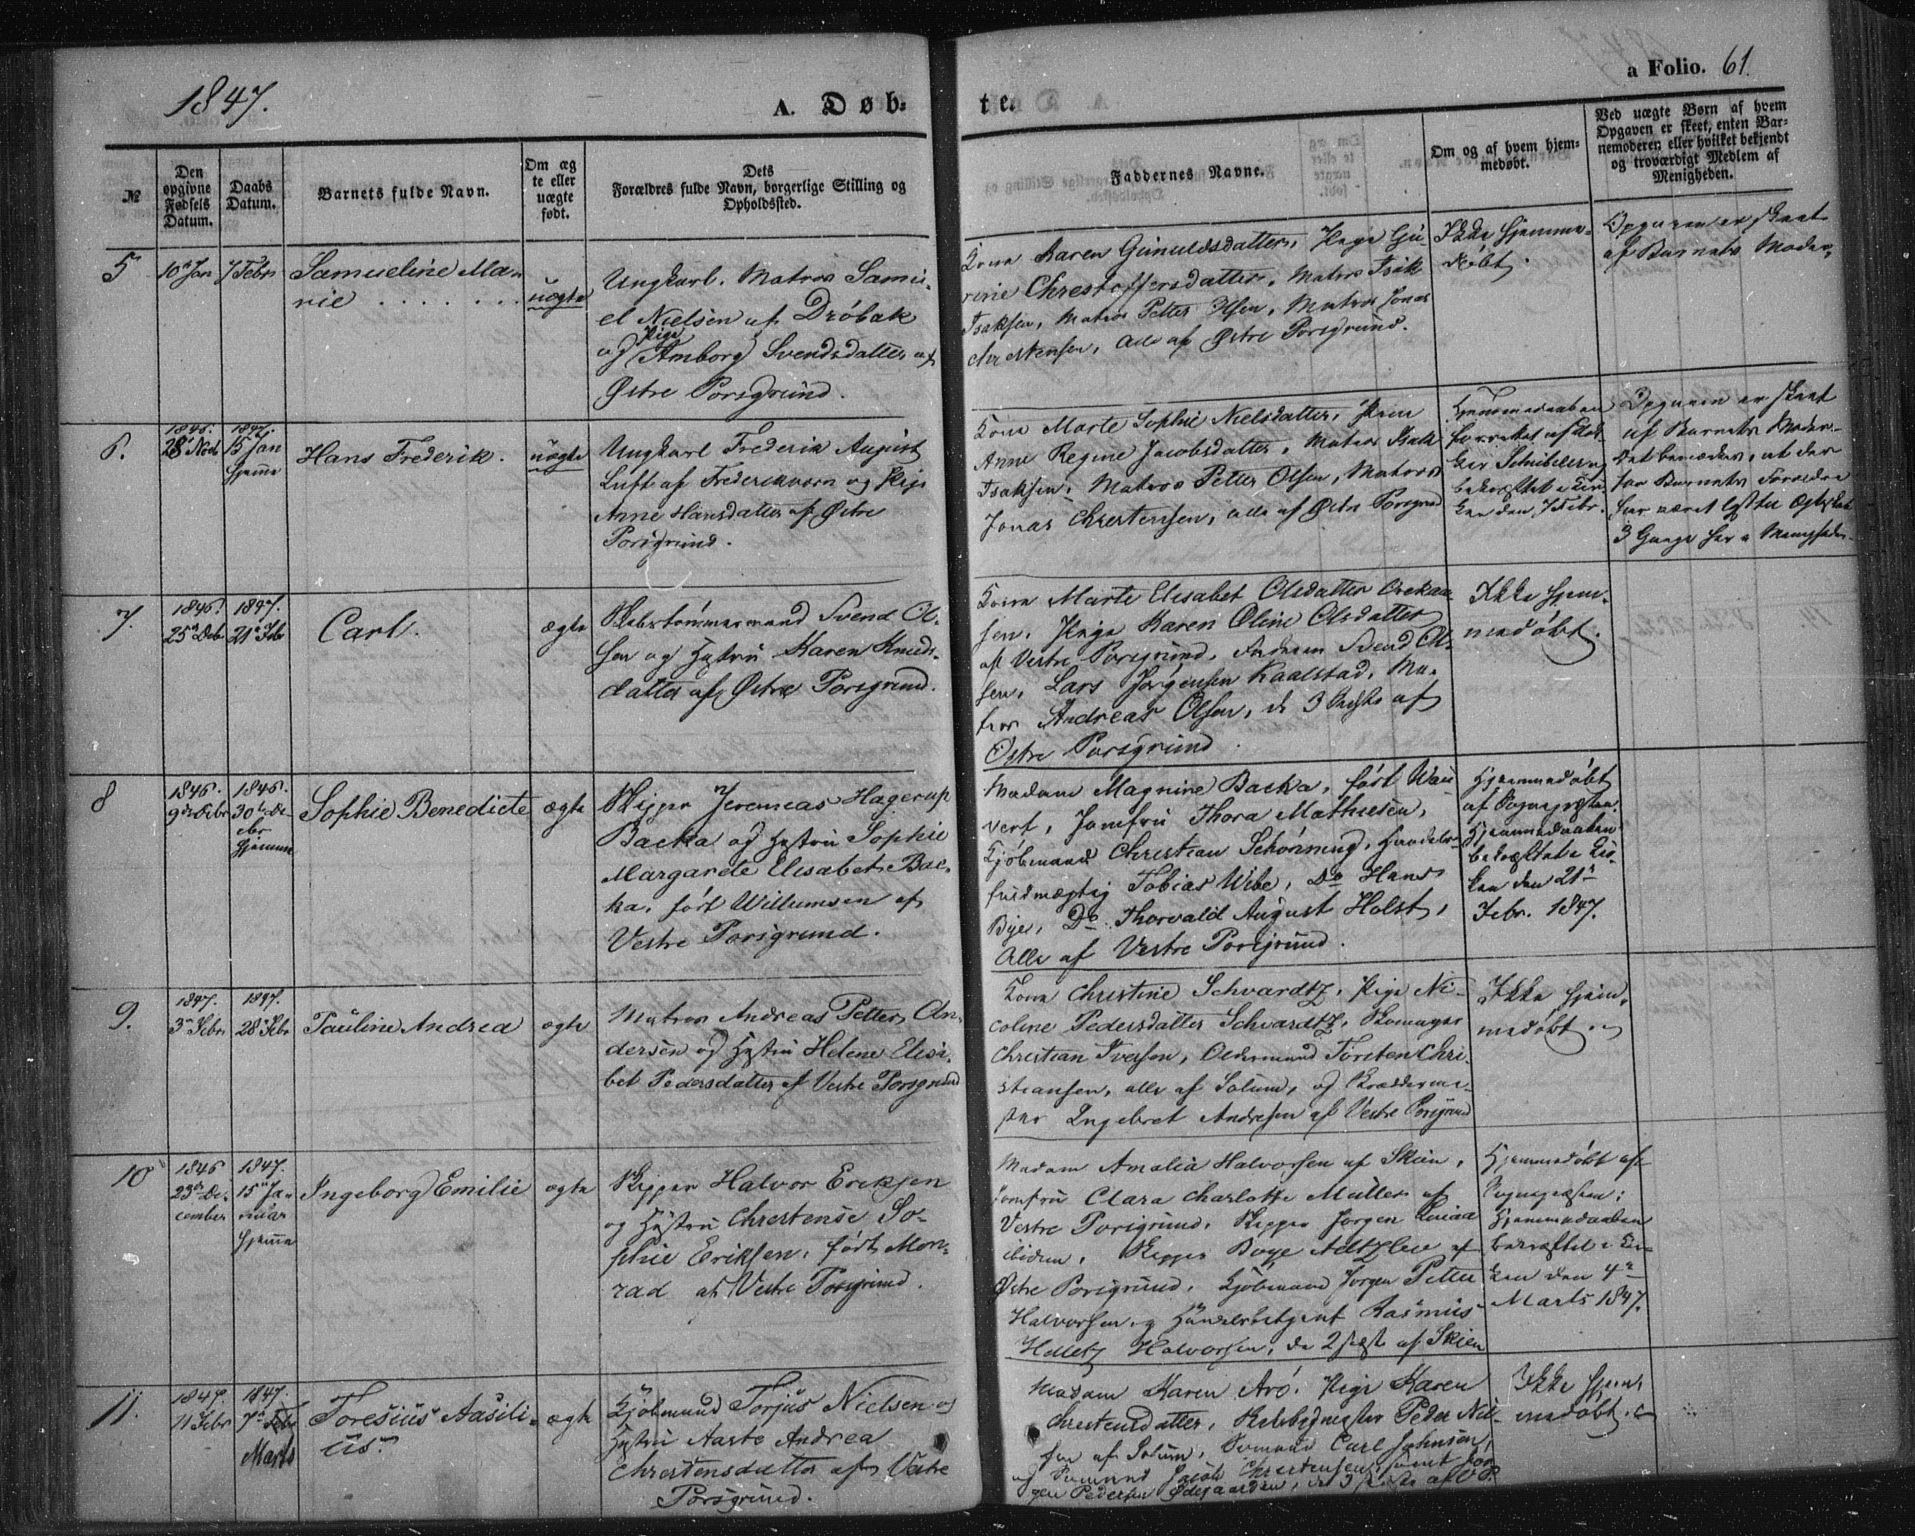 1847.
A. Døb-
te.
a Folio. 61.
№
Den opgivne Fødsels Datum.
Daabs Datum.
Barnets fulde Navn.
Om æg te eller uægte født.
Dets
Forældres fulde Navn, borgerlige Stilling og
Opholdssted.
Faddernes Navne.
Om og af hvem hjem-
medøbt.
Ved uægte Børn af hvem
Opgaven er skeet, enten Bar-
nemoderen eller hvilket bekjendt
og troværdigt Medlem af
Menigheden.
5
10 Jan
7 Febr
Samueline Ma-
rie . . . . . . .
uægte
Ungkarl. Matros Samu-
el Nielsen af Drøbak
og Pige Amborg Svendsdatter af
Østre Porsgrund.
Kone Karen Gunuldsdatter, Pige Gu-
rine Chrestoffersdatter, Matros Isak
Isaksen, Matros Petter Olsen, Matros Jonas
Christensen, alle af Østre Porsgrund.
Ikke hjemme-
døbt.
Opgaven er skeet
af Barnets Moder.
6.
1846.
28 Nov
1847.
15 Jan
hjemme
Hans Frederik.
uægte
Ungkarl Frederik August
Luft af Frederiksværn og Pige
Anne Hansdatter af Østre
Porsgrund.
Kone Marte Sophie Nielsdatter, Pige
Anne Regine Jacobsdatter, Matros Isak
Isaksen, Matros Petter Olsen, Matros
Jonas Christensen, alle af Østre Porsgrund
Hjemmedaaben
forrettet af
Schibsted og
bekræftet i Kir-
ken den 7 Febr.
Opgaven er skeet
af Barnets Moder.
Det bemærkes, at der
for Barnets Forældre
har været lyst til Ægteskab
3 Gange her i Menigheden.
7.
1846.
25 Debr
1847.
21 Febr
Carl.
ægte
Skibstømmermand Svend Ol-
sen og Hustru Karen Knuds-
datter af Østre Porsgrund.
Kone Marte Elisabet Olsdatter
sen, Pige Karen Oline Olsdatter
af Vestre Porsgrund, Svend Ol-
sen, Lars Jørgensen Kaalstad, Ma-
tros Andreas Olsen, de 3 sidste af
Østre Porsgrund.
Ikke hjem-
medøbt.
8
1846.
9 Debr
1846.
30 De-
cbr
hjemme
Sophie Benedicte
ægte
Skipper Jeremias Hagerup
Backa og Hustru Sophie
Margarete Elisabet Bac-
ka, født Willumsen af
Vestre Porsgrund.
Madam Magnine Backa, født Wau
vert, Jomfru Thora Mathiesen,
Kjøbmand Christian Schønning, Handels-
fuldmægtig Tobias Wibe, Do Hans
Bye, Do Thorvald August Holst,
Alle af Vestre Porsgrund.
Hjemmedøbt
af Sognepræsten.
Hjemmedaaben
bekræftet i Kir-
ken den 21
Febr. 1847.
9.
1847.
3 Febr
1847.
28 Febr
Pauline Andrea
ægte
Matros Andreas Petter An-
dersen og Hustru Helene Elisa-
bet Pedersdatter af Vestre Porsgrund
Kone Christine Schvardtz, Pige Ni-
coline Pedersdatter Schvardtz, Skomager
Christian Iversen, Oldermand Torsten Chri-
stiansen, alle af Solum, og Skræddermes-
ter Ingebret Andresen af Vestre Porsgrund
Ikke hjem-
medøbt.
10
1846
23 De-
cember
1847.
15 Ja-
nuar
hjemme
Ingeborg Emilie
ægte
Skipper Halvor Eriksen
og Hustru Christense So-
phie Eriksen, født Mon-
rad af Vestre Porsgrund.
Madam Amalia Halvorsen af Skien,
Jomfru Clara Charlotte Müller af
Vestre Porsgrund, Skipper Jørgen
Skipper Boye af
Østre Porsgrund, Kjøbmand Jørgen Petter
Halvorsen og Handelsbetjent Rasmus
Halvorsen, de 2 sidste af Skien
Hjemmedøbt af
Sognepræsten.
Hjemmedaaben
bekræftet i Kir-
ken den 4
Marts 1847.
11.
1847
11 Febr
1847.
7 Febr
Marts
Toresius Aasili-
us.
ægte
Kjøbmand Torjus Nielsen og
Hustru Aaste Andrea
Christensdatter af Vestre
Porsgrund.
Madam Karen Arö, Pige Karen
Christensdatter, Peder Niel-
sen af Solum, Sømand Carl Johnsen,
og Sømand Jacob Christensen samt Jør-
gen Pedersen Ødegaarden, de 3 sidste af V. P.
Ikke hjem-
medøbt.